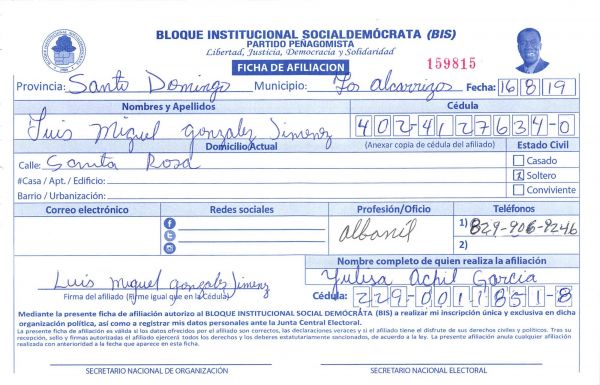 BLOQUE INSTITUCIONAL SOCIALDEMÓCRATA (BIS)
PARTIDO PEÑAGOMISTA
Libertad, Justicia, Democracia y Solidaridad
FICHA DE AFILIACION
159815
Provincia: Santo Domingo Municipio: Los alcarrizos Fecha: 16/8/19
Nombres y Apellidos Cédula
Luis Miguel gonzalez Jimenez 402-4127634-0
Domicilio Actual (Anexar copia de cédula del afiliado) Estado Civil
Calle: Santa Rosa Casado
#Casa / Apt. / Edificio: Soltero
Barrio / Urbanización: Conviviente
Correo electrónico Redes sociales Profesión/Oficio Teléfonos
albanil 1) 829-906-9246
2)
Nombre completo de quien realiza la afiliación
Luis Miguel gonzalez Jimenez Yulisa Garcia
Firma del afiliado (Firme igual que en la Cédula) Cédula: 229-0011851-8
Mediante la presente ficha de afiliación autorizo al BLOQUE INSTITUCIONAL SOCIAL DEMÓCRATA (BIS) a realizar mi inscripción única y exclusiva en dicha
organización política, así como a registrar mis datos personales ante la Junta Central Electoral.
La presente ficha de afiliación es válida si los datos ofrecidos por el afiliado son correctos, las declaraciones veraces y si el afiliado tiene el disfrute de sus derechos civiles y políticos. Tras su
recepción, sello y firmas autorizadas el afiliado ejercerá todos los derechos y los deberes estatutariamente sancionados, de acuerdo a la ley. La presente afiliación anula cualquier afiliación
realizada con anterioridad a la fecha que aparece en esta ficha.
SECRETARIO NACIONAL DE ORGANIZACIÓN SECRETARIO NACIONAL ELECTORAL